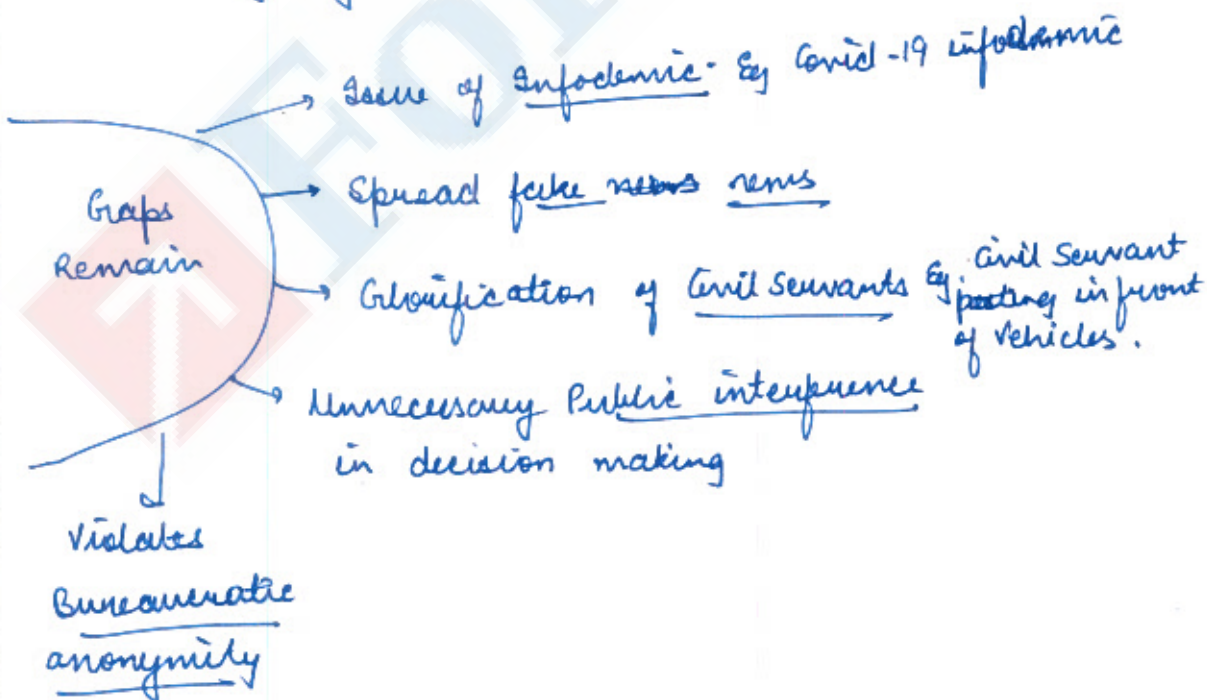 Issue of Infodemic. Eg Covid-19 infodemic
Spread fake news
Gaps
Remain
Glorification of Civil Servants Eg. Civil Servant
posting in front
of vehicles.
Unnecessary Public interference
in decision making
Violates
Bureaucratic
anonymity